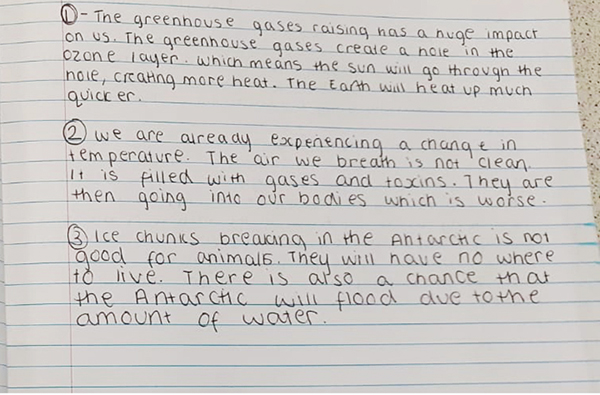 ① - The greenhouse gases raising has a huge impact
on us. The greenhouse gases create a hole in the
ozone layer. which means the sun will go through the
hole, creating more heat. The Earth will heat up much
quicker.
② we are already experiencing a change in
temperature. The air we breath is not clean.
It is filled with gases and toxins. They are
then going into our bodies which is worse.
③ Ice chunks breaking in the Antarctic is not
good for animals. They will have no where
to live. There is also a chance that
the Antarctic will flood due to the
amount of water.